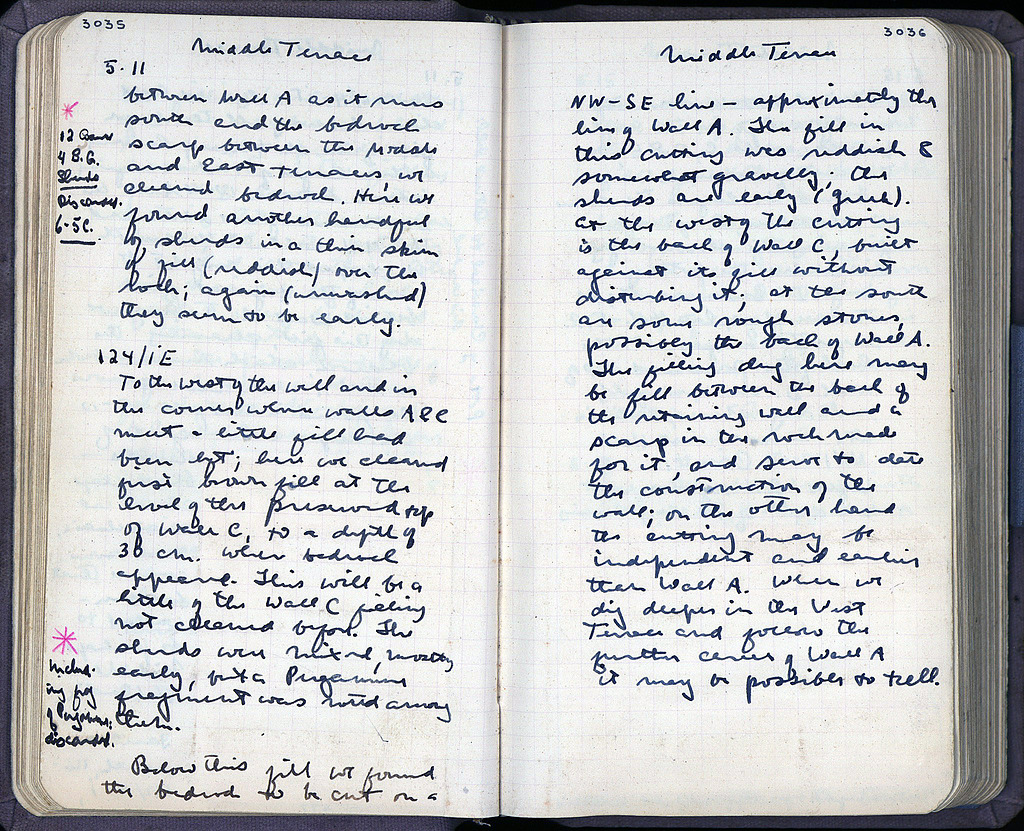 3035
Middle Terrace
5·11
between Wall A as it runs
south and the bedrock
scarp between the Middle
and East Terraces, we
cleared bedrock. Here we
found another handful
of sherds in a thin skim
of fill (reddish) over the
rock; again (unwashed)
they seem to be early.
12 Coarse
4 B.G.
Sherds
Discarded.
6-5C.
124/1E
To the west of the wall and in
the corner where walls A & C
meet a little fill had
been left; here we cleared
first brown fill at the
level of the preserved top
of Wall C, to a depth of
30 cm. where bedrock
appeared. This will be a
little of the Wall C filling
not cleared before. The
sherds were mixed, mostly
early, but a Pergamene
fragment was noted among
them.
Includ-
ing frag
of Pergamene;
discarded.
Below this fill we found
the bedrock to be cut on a
3036
Middle Terrace
NW-SE line - approximately the
line of Wall A. The fill in
this cutting was reddish &
somewhat gravelly; the
sherds are early (Greek).
At the west of the cutting
is the back of Wall C, built
against its fill without
disturbing it; at the south
are some rough stones,
possibly the back of Wall A.
The filling dug here may
be fill between the back of
the retaining wall and a
scarp in the rock made
for it, and serve to date
the construction of the
wall; on the other hand
the cutting may be
independent and earlier
than Wall A. When we
dig deeper in the West
Terrace and follow the
further course of Wall A
it may be possible to tell.